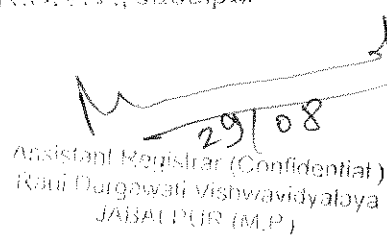 29/08
Assistant Registrar (Confidential)
Rani Durgawati Vishwavidyalaya
JABALPUR (M.P.)